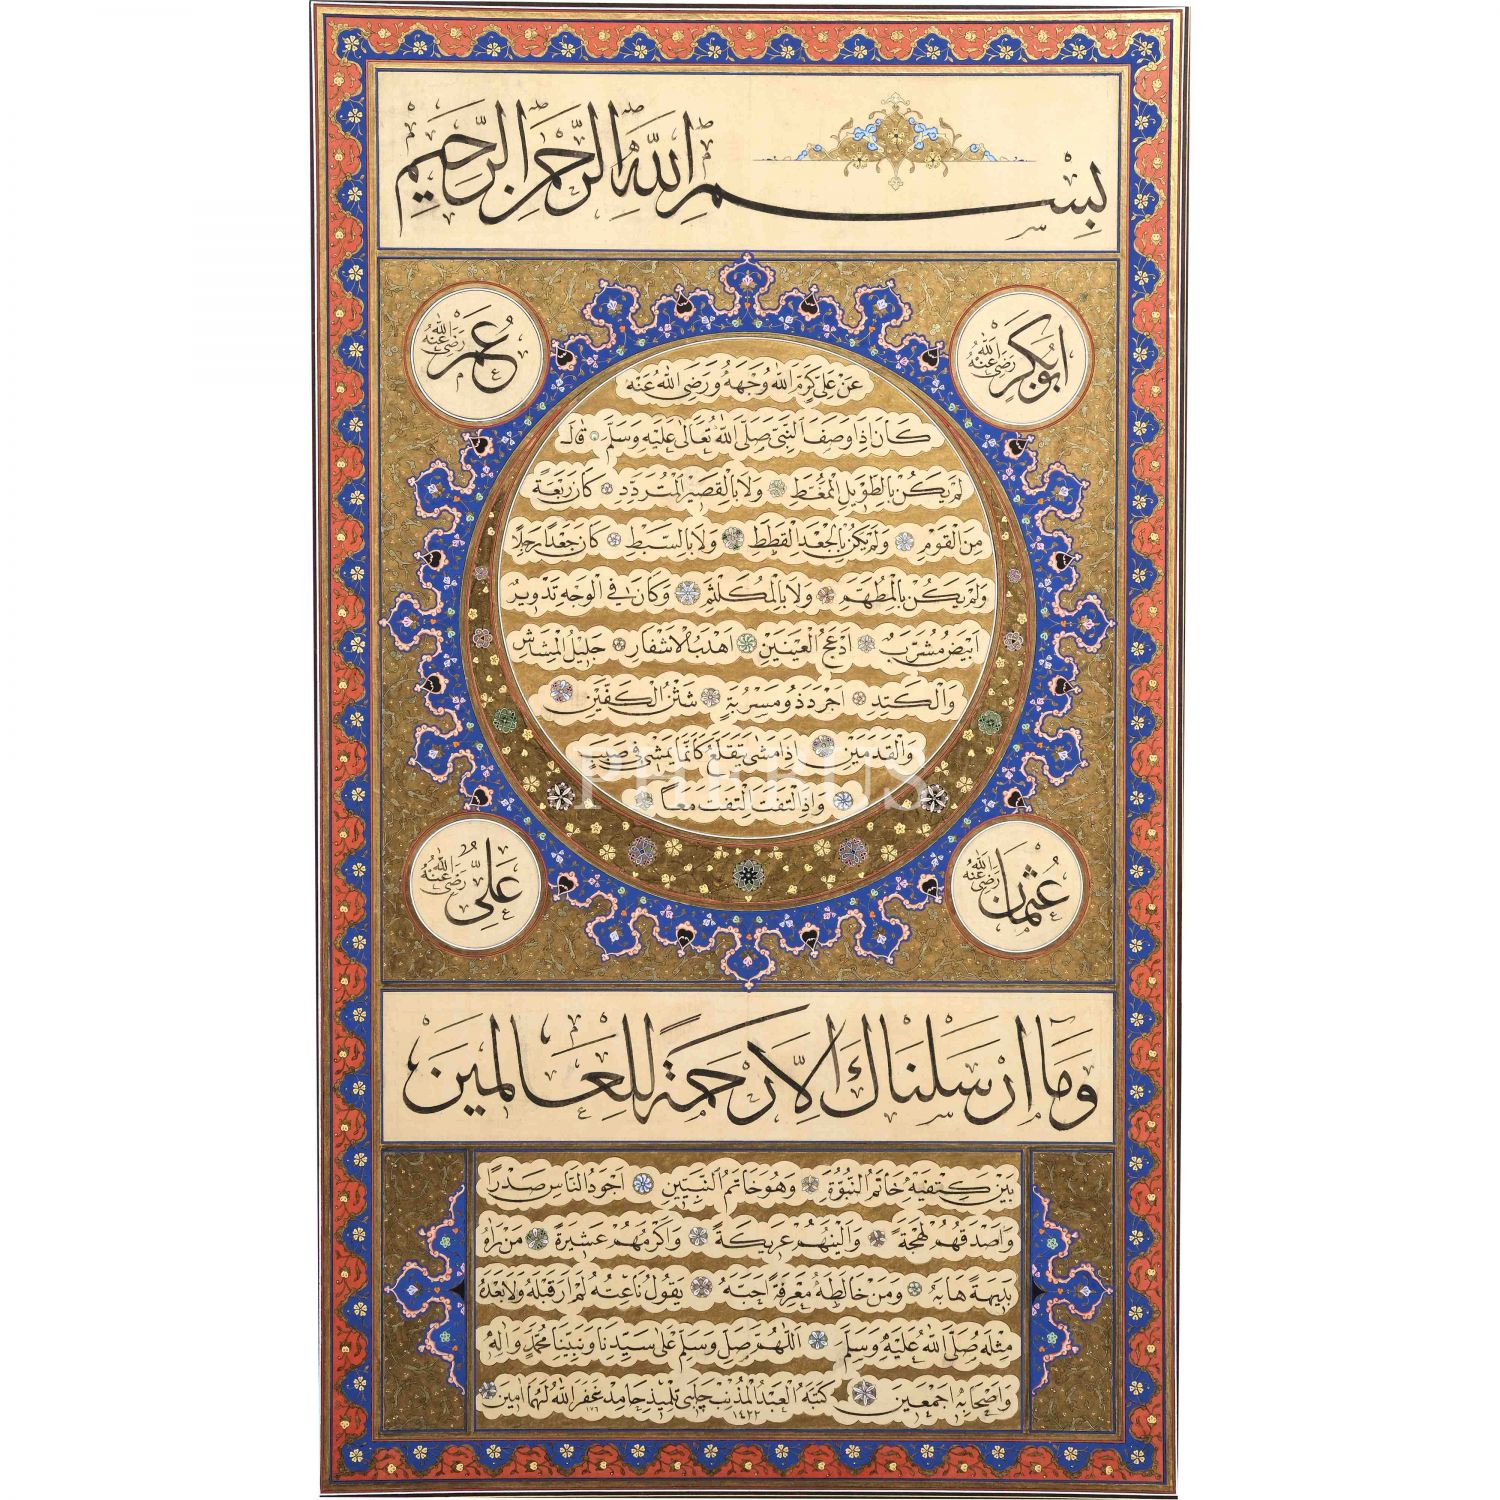 بِسْمِ اللّٰهِ الرَّحْمٰنِ الرَّحِيمِ
ابوبكر رضى الله عنه
عمر رضى الله عنه
عن على كرم الله وجهه ورضى الله عنه
كان اذا وصف النبى صلى الله تعالى عليه وسلم قال
لم يكن بالطويل الممغط ولا بالقصير المتردد كان ربعة
من القوم ولم يكن بالجعد القطط ولا بالسبط كان جعدا رجلا
ولم يكن بالمطهم ولا بالمكلثم وكان فى الوجه تدوير
ابيض مشرب ادعج العينين اهدب الاشفار جليل المشاش
والكتد اجرد ذو مسربة شثن الكفين
والقدمين اذا مشى يتقلع كانما يمشى فى صبب
واذا التفت التفت معا
PHEBUS
عثمان رضى الله عنه
على رضى الله عنه
وَمَا ارسلناك الا رحمة للعالمين
بين كتفيه خاتم النبوة وهو خاتم النبيين اجود الناس صدرا
واصدقهم لهجة والينهم عريكة واكرمهم عشيرة من راه
بديهة هابه ومن خالطه معرفة احبه يقول ناعته لم ار قبله ولا بعده
مثله صلى الله عليه وسلم اللهم صل وسلم على سيدنا ونبينا محمد واله
واصحابه اجمعين كتبه العبد المذنب چلبى تلميذ حامد غفر الله لهما امين ١٤٢٢